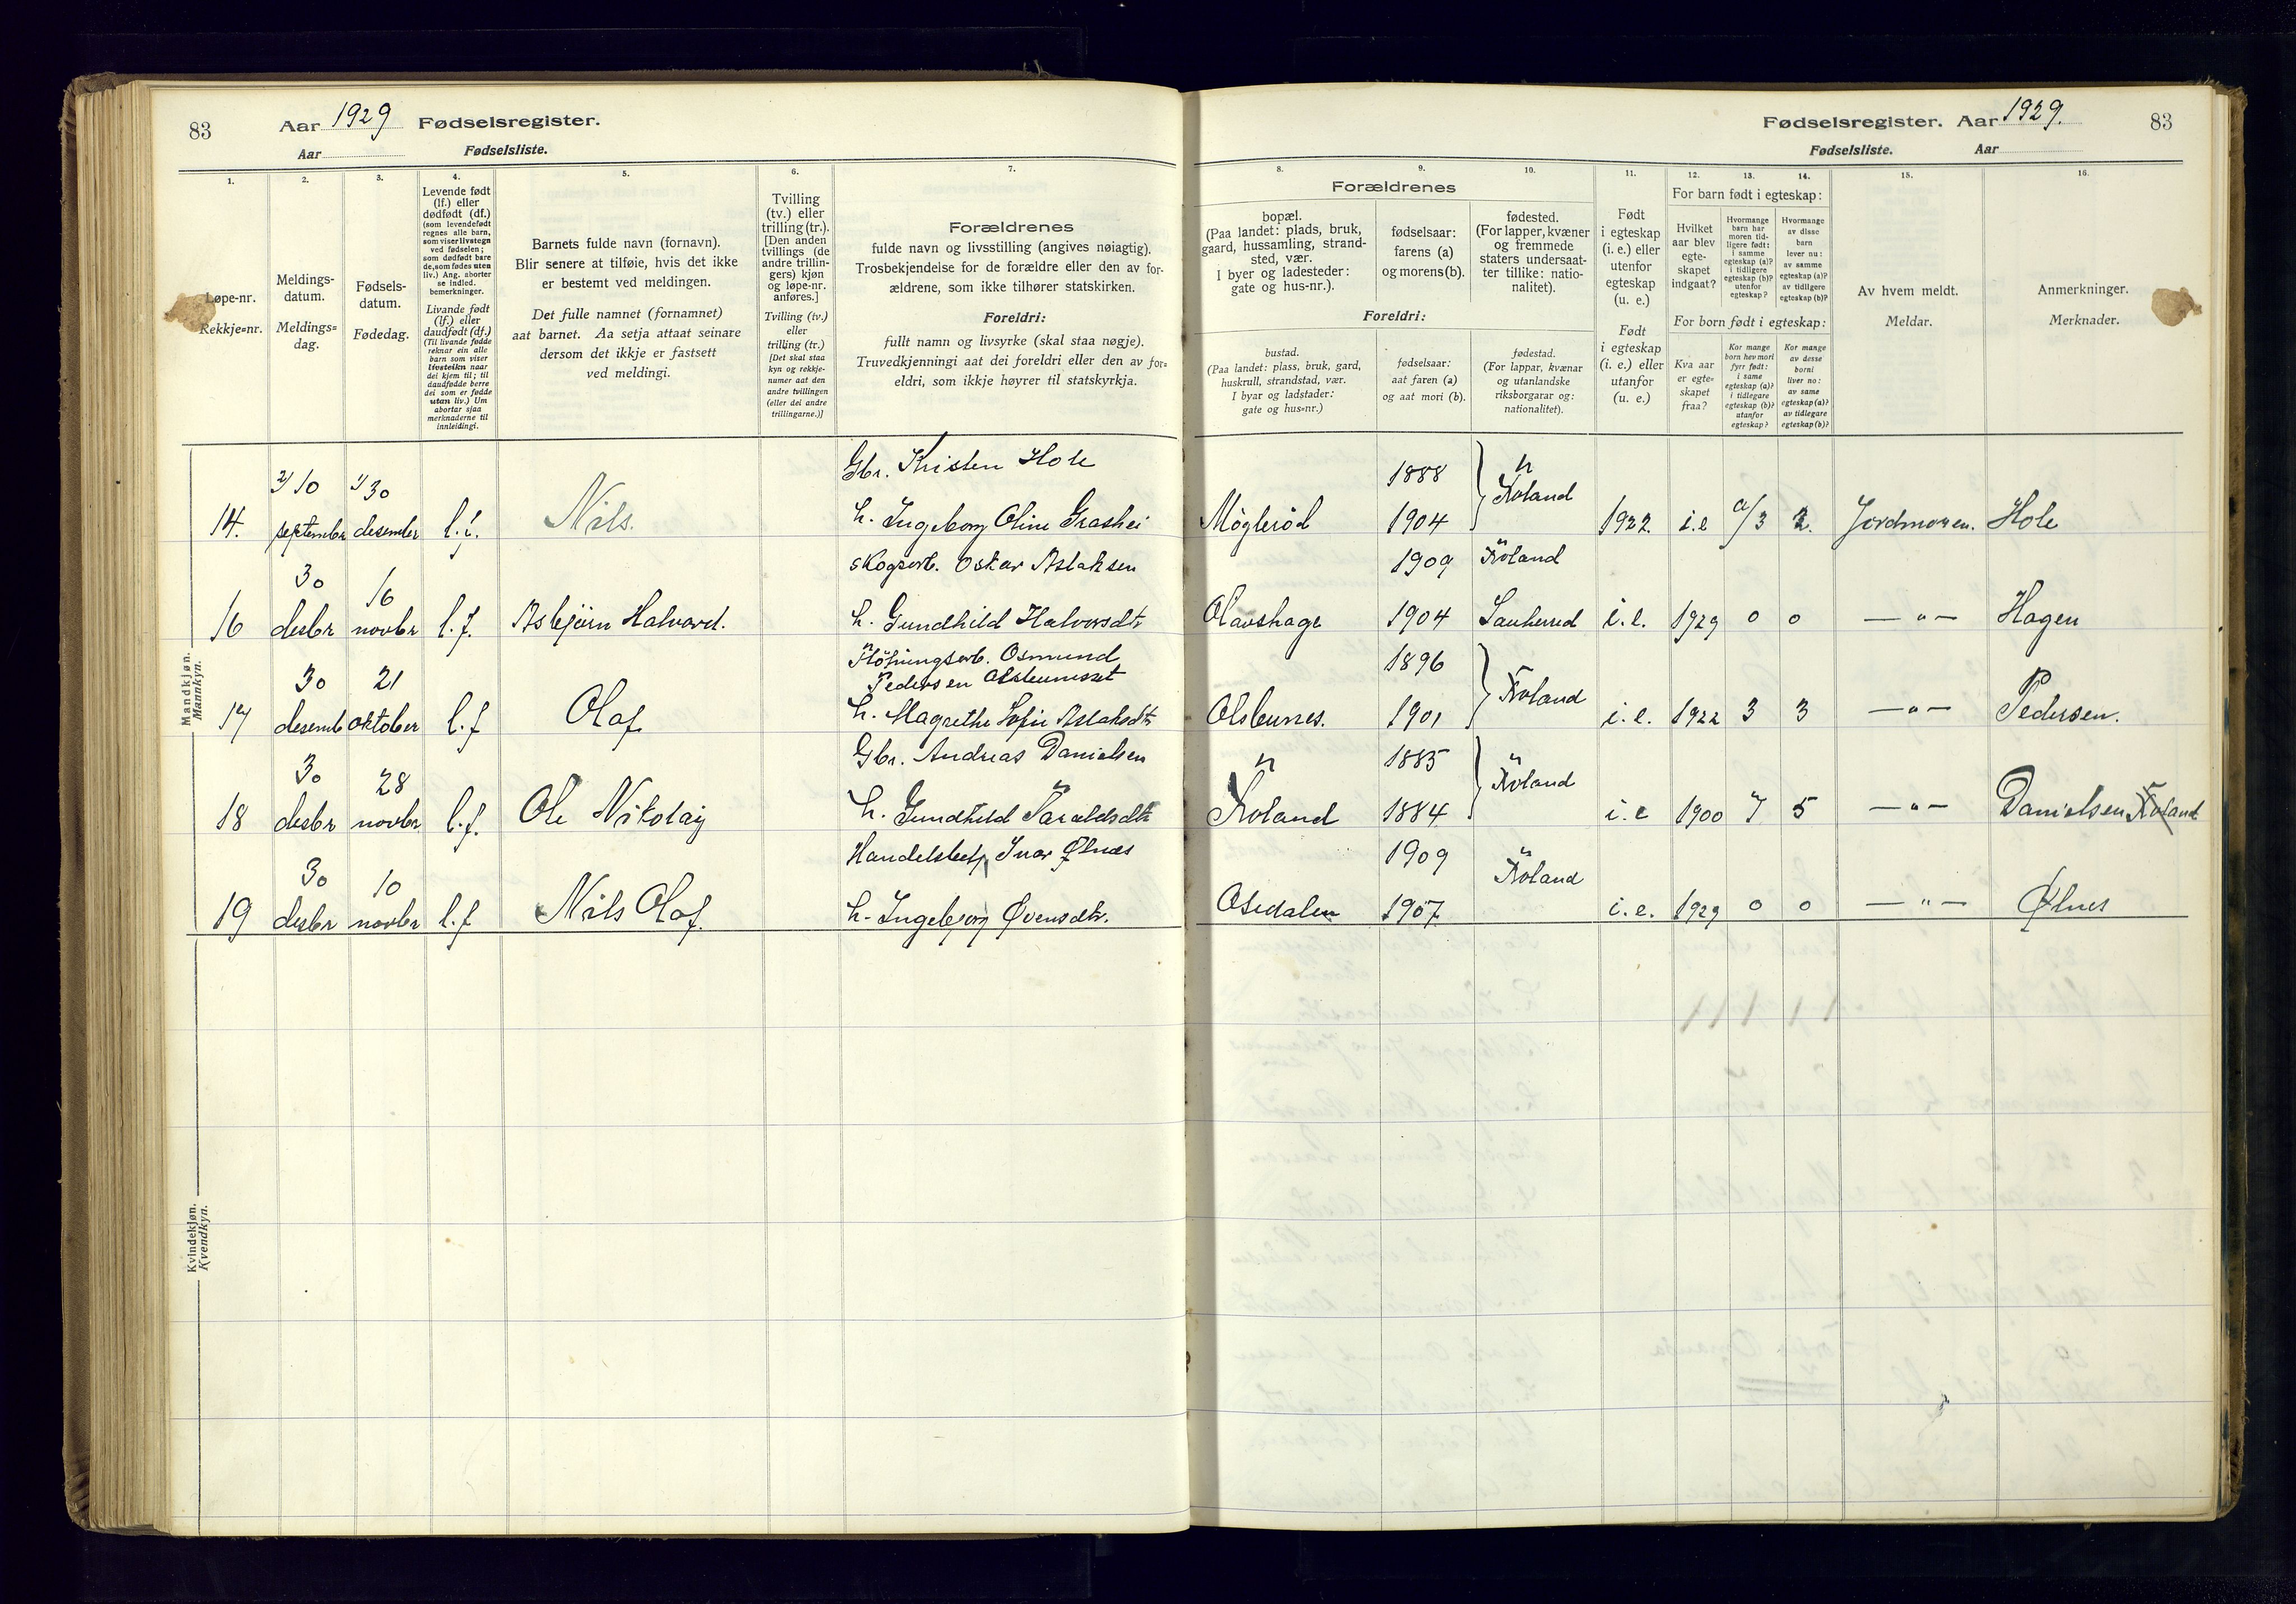 83
Aar 1929 Fødselsregister.
Aar Fødselsliste.
1.
Løpe-nr.
Rekkje=nr.
2.
Meldings-
datum.
Meldings=
dag.
3.
Fødsels-
datum.
Fødedag.
4.
Levende født
(lf.) eller
dødfødt (df.)
(som levendefødt
regnes alle barn,
som viser livstegn
ved fødselen;
som dødfødt bare
de, som fødes uten
liv.) Ang. aborter
se indled.
bemerkninger.
Livande født
(lf.) eller
daudfødt (df.)
(Til livande fødde
reknar ein alle
barn som viser
livsteikn naar
dei kjem til; til
daudfødde berre
dei som er fødde
utan liv.) Um
abortar sjaa
merknaderne til
innleidingi.
5.
Barnets fulde navn (fornavn).
Blir senere at tilføie, hvis det ikke
er bestemt ved meldingen.
Det fulle namnet (fornamnet)
aat barnet. Aa setja attaat seinare
dersom det ikkje er fastsett
ved meldingi.
6.
Tvilling
(tv.) eller
trilling (tr.).
[Den anden
tvillings (de
andre trillin-
gers) kjøn
og løpe-nr.
anføres.]
Tvilling (tv.)
eller
trilling (tr.)
[Det skal staa
kyn og rekkje-
numer aat den
andre tvillingen
(eller dei andre
trillingarne.)]
7.
Forældrenes
fulde navn og livsstilling (angives nøiagtig).
Trosbekjendelse for de forældre eller den av for-
ældrene, som ikke tilhører statskirken.
Foreldri:
fullt namn og livsyrke (skal staa nøgje).
Truvedkjenningi aat dei foreldri eller den av for=
eldri, som ikkje høyrer til statskyrkja.
Fødselsregister. Aar 1929.
83
Fødselsliste. Aar
8.
Forældrenes
bopæl.
(Paa landet: plads, bruk,
gaard, hussamling, strand-
sted, vær.
I byer og ladesteder:
gate og hus-nr.).
Foreldri:
bustad.
(Paa landet: plass, bruk, gard,
huskrull, strandstad, vær.
I byar og ladstader:
gate og hus=nr.)
9.
fødselsaar:
farens (a)
og morens (b).
fødselsaar:
aat faren (a)
og aat mori (b).
10.
fødested.
(For lapper, kvæner
og fremmede
staters undersaat-
ter tillike: natio-
nalitet).
fødestad.
(For lappar, kvænar
og utanlandske
riksborgarar og:
nationalitet).
11.
Født
i egteskap
(i. e.) eller
utenfor
egteskap
(u. e.)
Født
i egteskap
(i. e.) eller
utanfor
(u. e.)
12. 13. 14.
For barn født i egteskap:
Hvilket
aar blev
egte-
skapet
indgaat?
Hvormange
barn har
moren tid-
ligere født:
i samme
egteskap (a)?
i tidligere
egteskap (b)?
utenfor
egteskap?
Hvormange
av disse
barn
lever nu:
av samme
egteskap (a)?
av tidligere
egteskap (b)?
For born født i egteskap:
Kva aar
er egte=
skapet
fraa?
Kor mange
born hev mori
fyrr født:
i same
egteskap (a)?
i tidlegare
egteskap (b)?
utanfor
egteskap?
Kor mange
av desse
borni
liver no:
av same
egteskap (a)?
av tidlegare
egteskap (b)?
15.
Av hvem meldt.
Meldar.
16.
Anmerkninger.
Merknader.
Mandkjøn.
Mannkyn.
Gbr. Kristen Hole 1888
14. 2/10 september 1/30 desember l.f. Nils. h. Ingeborg Oline Grashei Møglerød 1904 Froland 1922. i.e a/3 2. Jordmoren. Hole
Skogsarb. Oskar Aslaksen 1909 Froland
16 30 desbr 16 novbr l.f. Asbjørn Halvard. h. Gundhild Halvorsdtr Olavshage 1904 Sauherred i.e. 1929 0 0 — " — Hagen
Fløtningsarb. Osmund
Pedersen Olsbunesset 1896
17 30 desemb 21 oktober l.f Olaf h. Magrethe Sofie Aslaksdtr Olsbunes. 1901 Froland i.e. 1922 3 3 — " — Pedersen.
Gbr. Andreas Danielsen 1885
18 30 desbr 28 novbr l.f. Ole Nikolaiy h. Gundhild Taraldsdtr Froland 1884 Froland i.e 1900 7 5 — " — Danielsen Froland
Handelsbetj. Ivar Ølnes 1909
19 30 desbr 10 novbr l.f Nils Olaf. h. Ingebjørg Øvensdtr. Osedalen 1907 Froland i.e. 1929 0 0 — " — Ølnes
Kvindekjøn.
Kvendkyn.